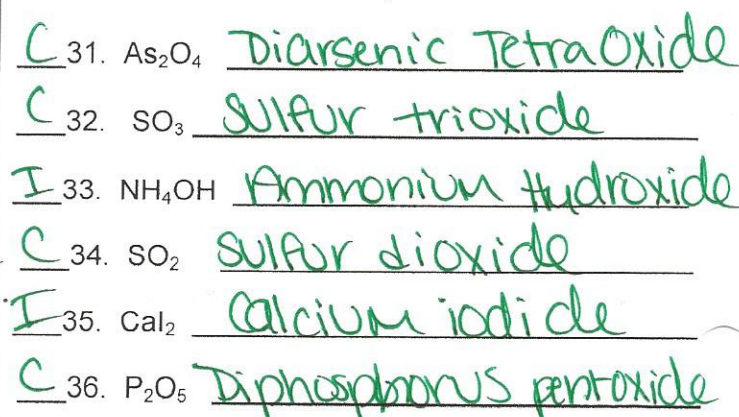 C 31. As₂O₄ Diarsenic TetraOxide
C 32. SO₃ Sulfur trioxide
I 33. NH₄OH Ammonium Hydroxide
C 34. SO₂ Sulfur dioxide
I 35. CaI₂ Calcium iodide
C 36. P₂O₅ Diphosphorus pentoxide